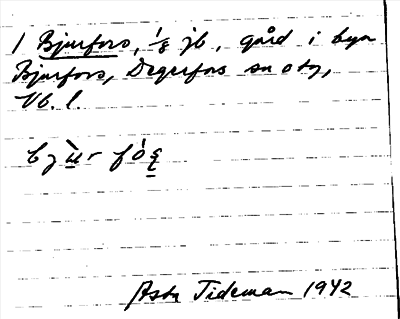 1 Bjurfors, ½ jb, gård i byn
Bjurfors, Degerfors sn o tg,
Vb. l.
bjùr fó
Asta Tideman 1942